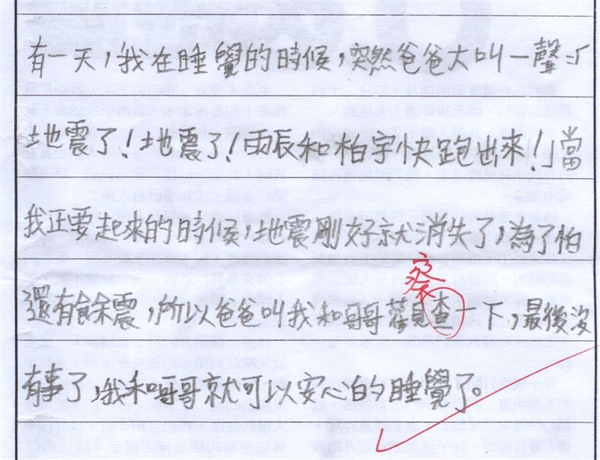 有一天，我在睡覺的時候，突然爸爸大叫一聲：「
地震了！地震了！雨辰和柏宇快跑出來！」當
我正要起來的時候，地震剛好就消失了，為了怕
察
還有餘震，所以爸爸叫我和哥哥觀查一下，最後沒
有事了，我和哥哥就可以安心的睡覺了。